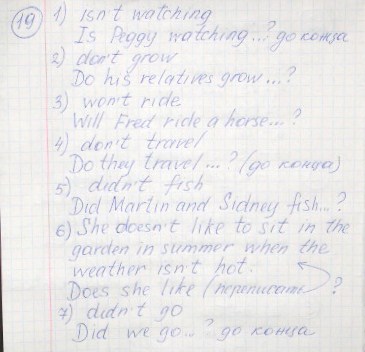 19
1) isn't watching
Is Peggy watching...? до конца
2) don't grow
Do his relatives grow...?
3) won't ride
Will Fred ride a horse...?
4) don't travel
Do they travel...? (до конца)
5) didn't fish
Did Martin and Sidney fish...?
6) She doesn't like to sit in the
garden in summer when the
weather isn't hot.
Does she like (переписать ?
7) didn't go
Did we go...? до конца